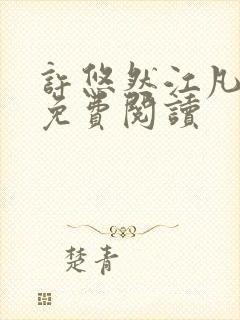 許悠然江凡
免費閱讀
楚青